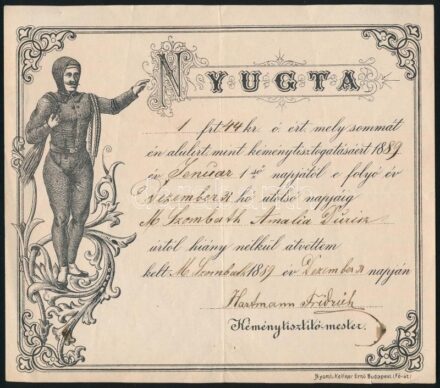 NYUGTA
1 frt 44 kr o. ért. mely sommát
én alulírt mint kéménytisztogatásáért 1889
év Jenuar 1ső napjától e folyó év
Dezember 31 hó utolsó napjáig
M Szombath Amalia Durisz
úrtól hiány nélkül átvettem
kelt M. Szombath 1889 év Dezember 31 napján
Hartmann Fridrich
Kéménytisztító-mester.
Nyomt. Kellner Ernő Budapest